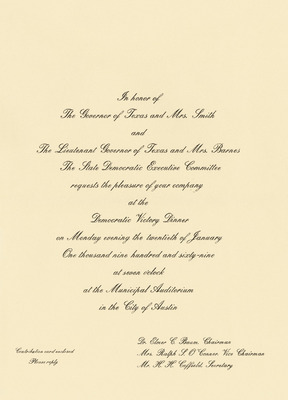 In honor of
The Governor of Texas and Mrs. Smith
and
The Lieutenant Governor of Texas and Mrs. Barnes
The State Democratic Executive Committee
requests the pleasure of your company
at the
Democratic Victory Dinner
on Monday evening the twentieth of January
One thousand nine hundred and sixty-nine
at seven o'clock
at the Municipal Auditorium
in the City of Austin
Contribution card enclosed
Please reply
Dr. Elmer C. Baum, Chairman
Mrs. Ralph S. O'Connor, Vice Chairman
Mr. H. H. Coffield, Secretary